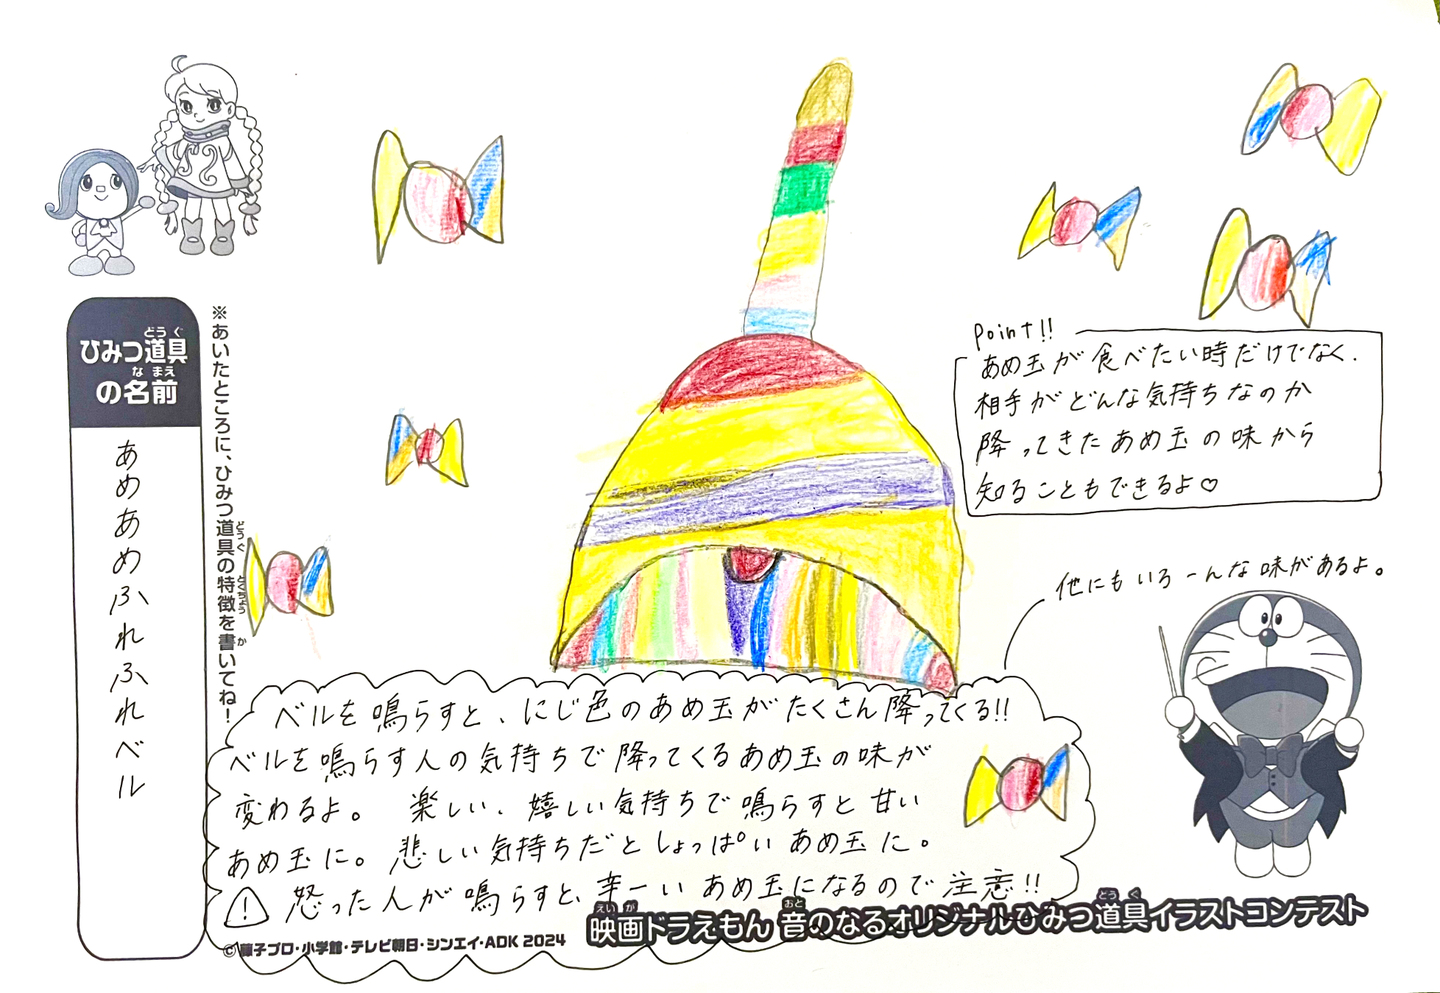 ひみつ道具
の名前
あめあめふれふれベル
※あいたところに、ひみつ道具の特徴を書いてね！
Point!!
あめ玉が食べたい時だけでなく、
相手がどんな気持ちなのか
降ってきたあめ玉の味から
知ることもできるよ♡
他にもいろーんな味があるよ。
ベルを鳴らすと、にじ色のあめ玉がたくさん降ってくる!!
ベルを鳴らす人の気持ちで降ってくるあめ玉の味が
変わるよ。 楽しい、嬉しい気持ちで鳴らすと甘い
あめ玉に。悲しい気持ちだとしょっぱいあめ玉に。
⚠ 怒った人が鳴らすと、辛ーいあめ玉になるので注意!!
映画ドラえもん 音のなるオリジナルひみつ道具イラストコンテスト
©藤子プロ・小学館・テレビ朝日・シンエイ・ADK 2024